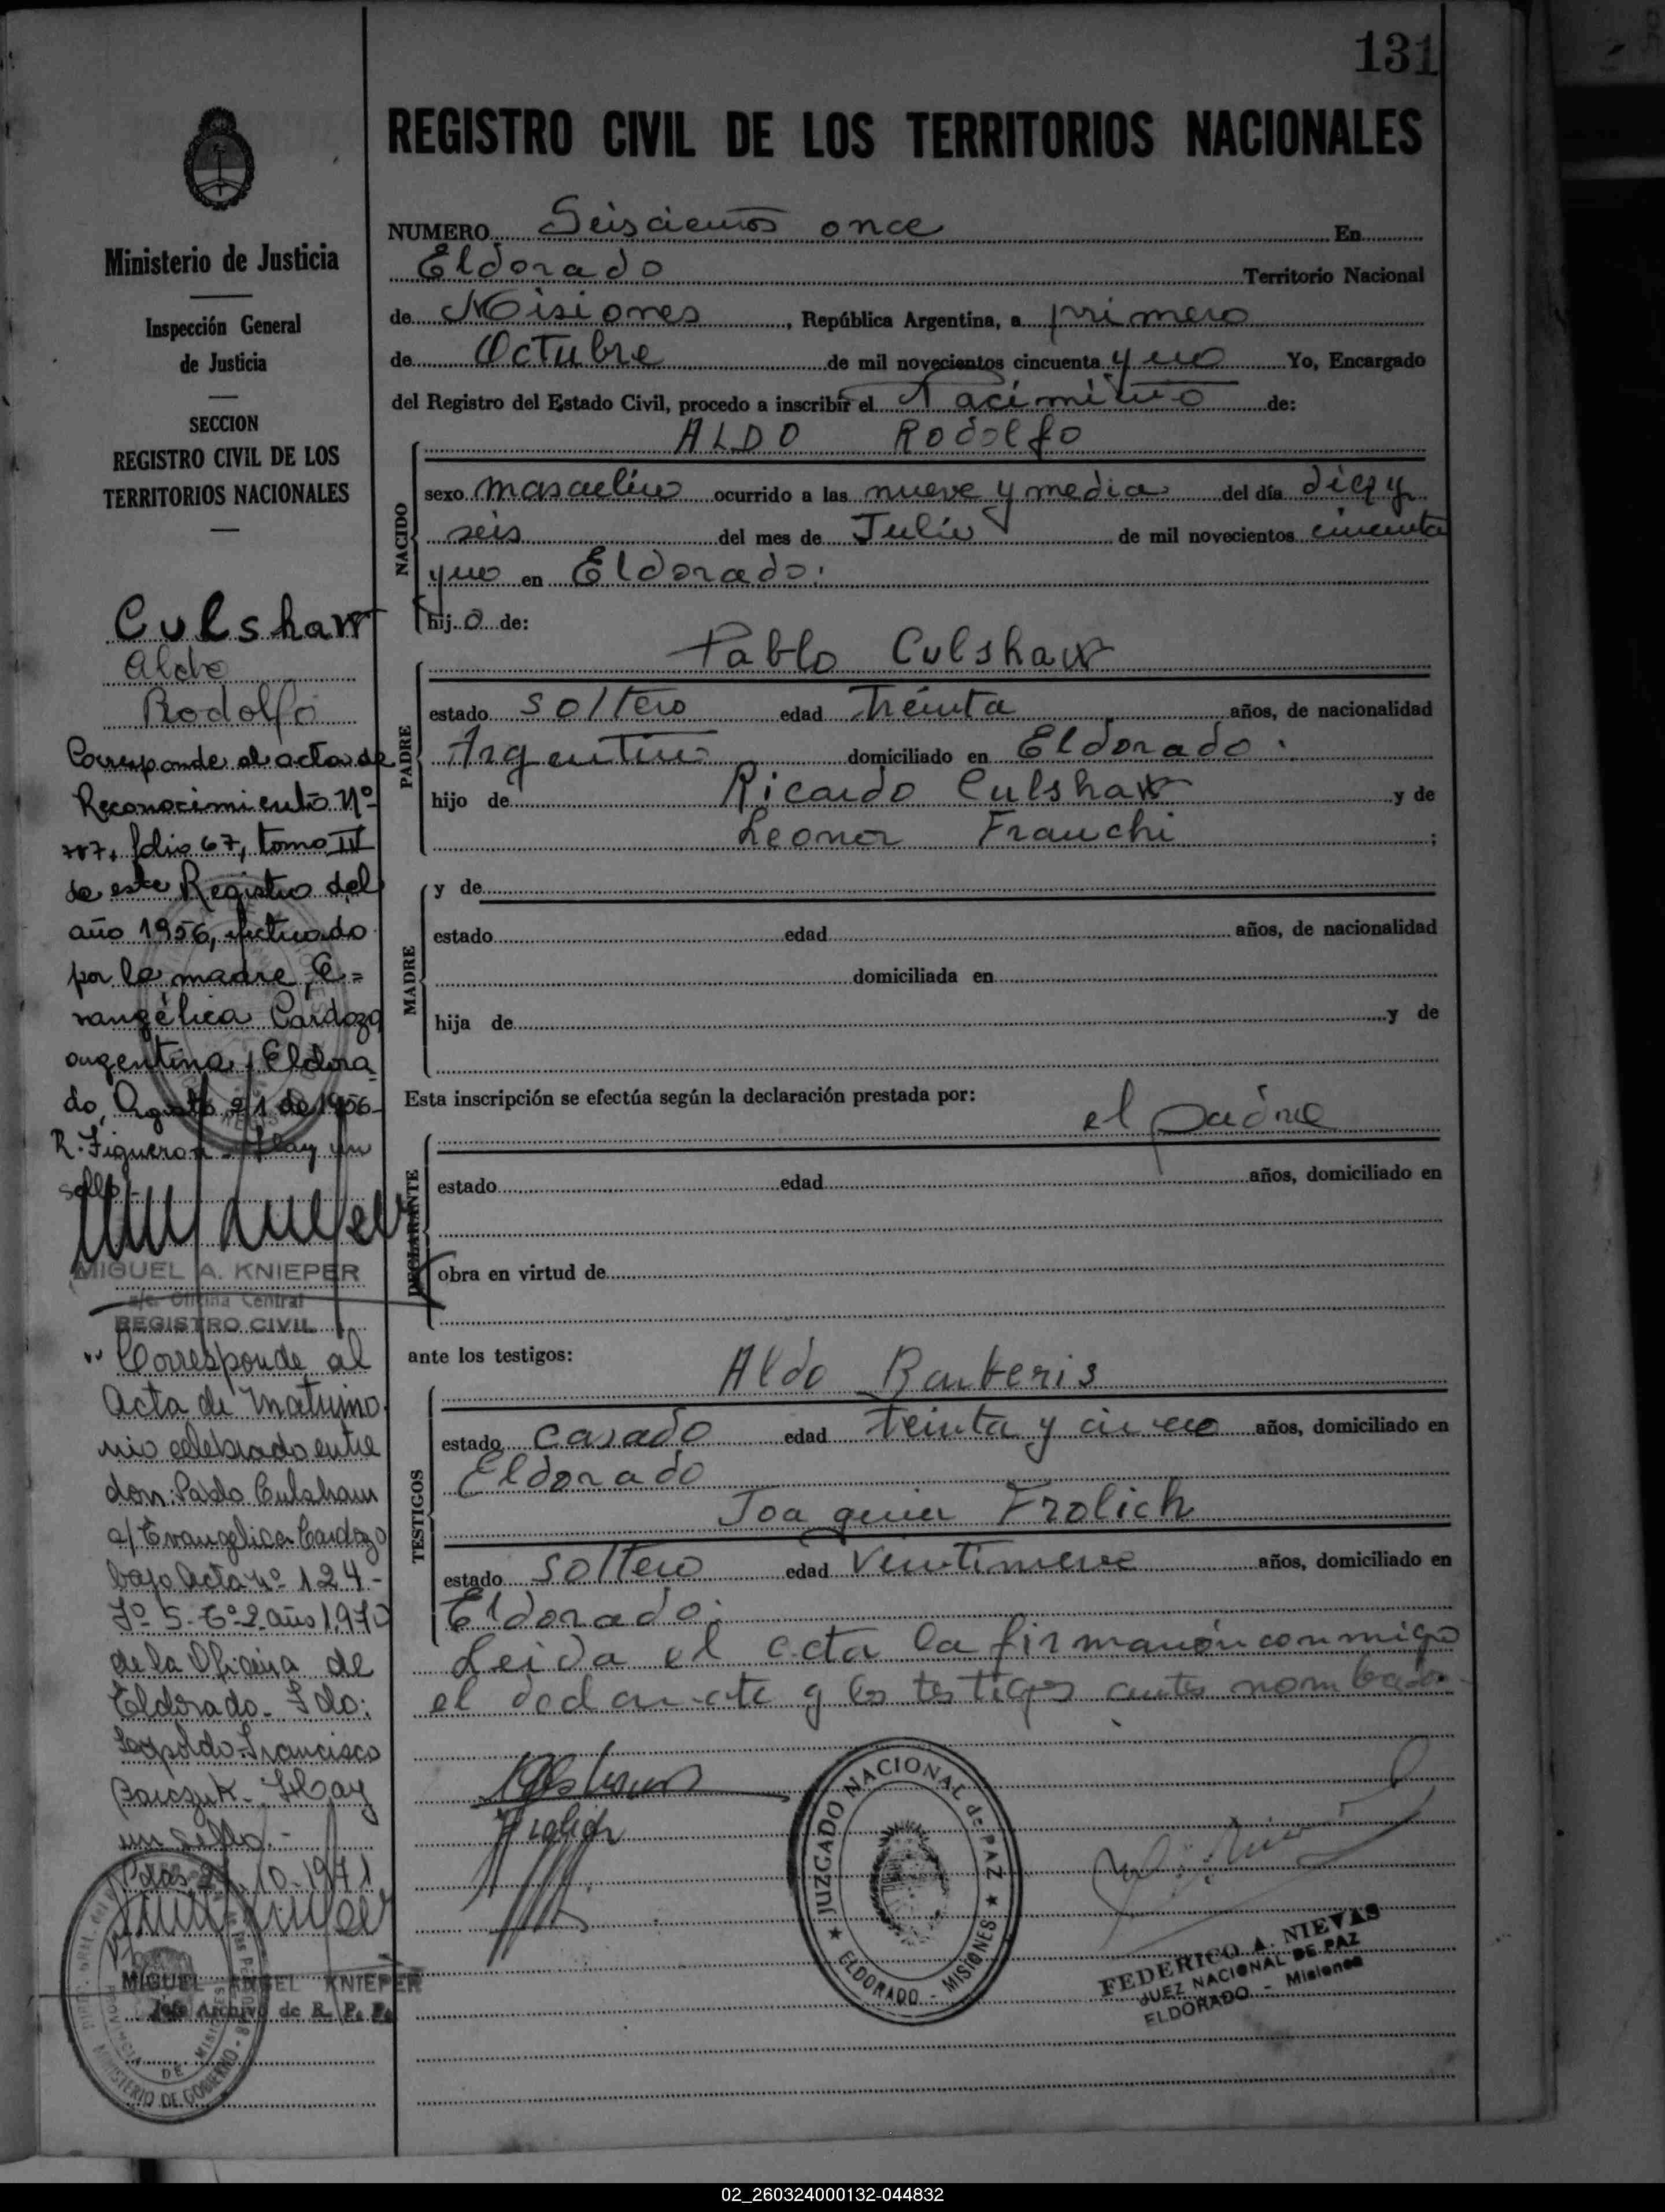 131
REGISTRO CIVIL DE LOS TERRITORIOS NACIONALES
Ministerio de Justicia
Inspección General
de Justicia
SECCION
REGISTRO CIVIL DE LOS
TERRITORIOS NACIONALES
Culshaw
Aldo
Rodolfo
Corresponde al acta de
Reconocimiento Nº
707, folio 67, tomo IV
de este Registro del
año 1956, efectuado
por la madre, E=
vangélica Cardozo
argentina, Eldora
do, Agosto 21 de 1956-
R. Figueroa - Hay un
sello.-
MIGUEL A. KNIEPER
a/c. Oficina Central
REGISTRO CIVIL
"Corresponde al
Acta de Matrimo
nio celebrado entre
don: Pablo Culshaw
c/ Evangelica Cardozo
bajo Acta nº 124-
Fº 5- Tº 2 año 1970
de la Oficina de
Eldorado- Fdo:
Leopoldo Francisco
Hay
un sello.-
Pdas 10-1971
MIGUEL ANGEL KNIEPER
Jefe Archivo de R. P. P.
PROVINCIA DE MISIONES
MINISTERIO DE GOBIERNO
NUMERO Seiscientos once En
Eldorado Territorio Nacional
de Misiones, República Argentina, a primero
de Octubre de mil novecientos cincuenta y uno Yo, Encargado
del Registro del Estado Civil, procedo a inscribir el Nacimiento de:
ALDO RODOLFO
NACIDO
sexo masculino ocurrido a las nueve y media del día diez y
seis del mes de Julio de mil novecientos cincuenta
y uno en Eldorado.
hij o de:
PADRE
Pablo Culshaw
estado soltero edad treinta años, de nacionalidad
Argentino domiciliado en Eldorado.
hijo de Ricardo Culshaw y de
Leonor Franchi;
MADRE
y de
estado edad años, de nacionalidad
domiciliada en
hija de y de
Esta inscripción se efectúa según la declaración prestada por:
el padre
DECLARANTE
estado edad años, domiciliado en
obra en virtud de
ante los testigos:
TESTIGOS
Aldo Barberis
estado casado edad treinta y cinco años, domiciliado en
Eldorado
Joaquin Frolich
estado soltero edad veintinueve años, domiciliado en
Eldorado.
Leida el acta la firmaron conmigo
el declarante y los testigos antes nombrados
Frolich
JUZGADO NACIONAL de PAZ
ELDORADO - MISIONES
FEDERICO A. NIEVAS
JUEZ NACIONAL DE PAZ
ELDORADO - Misiones
02_260324000132-044832